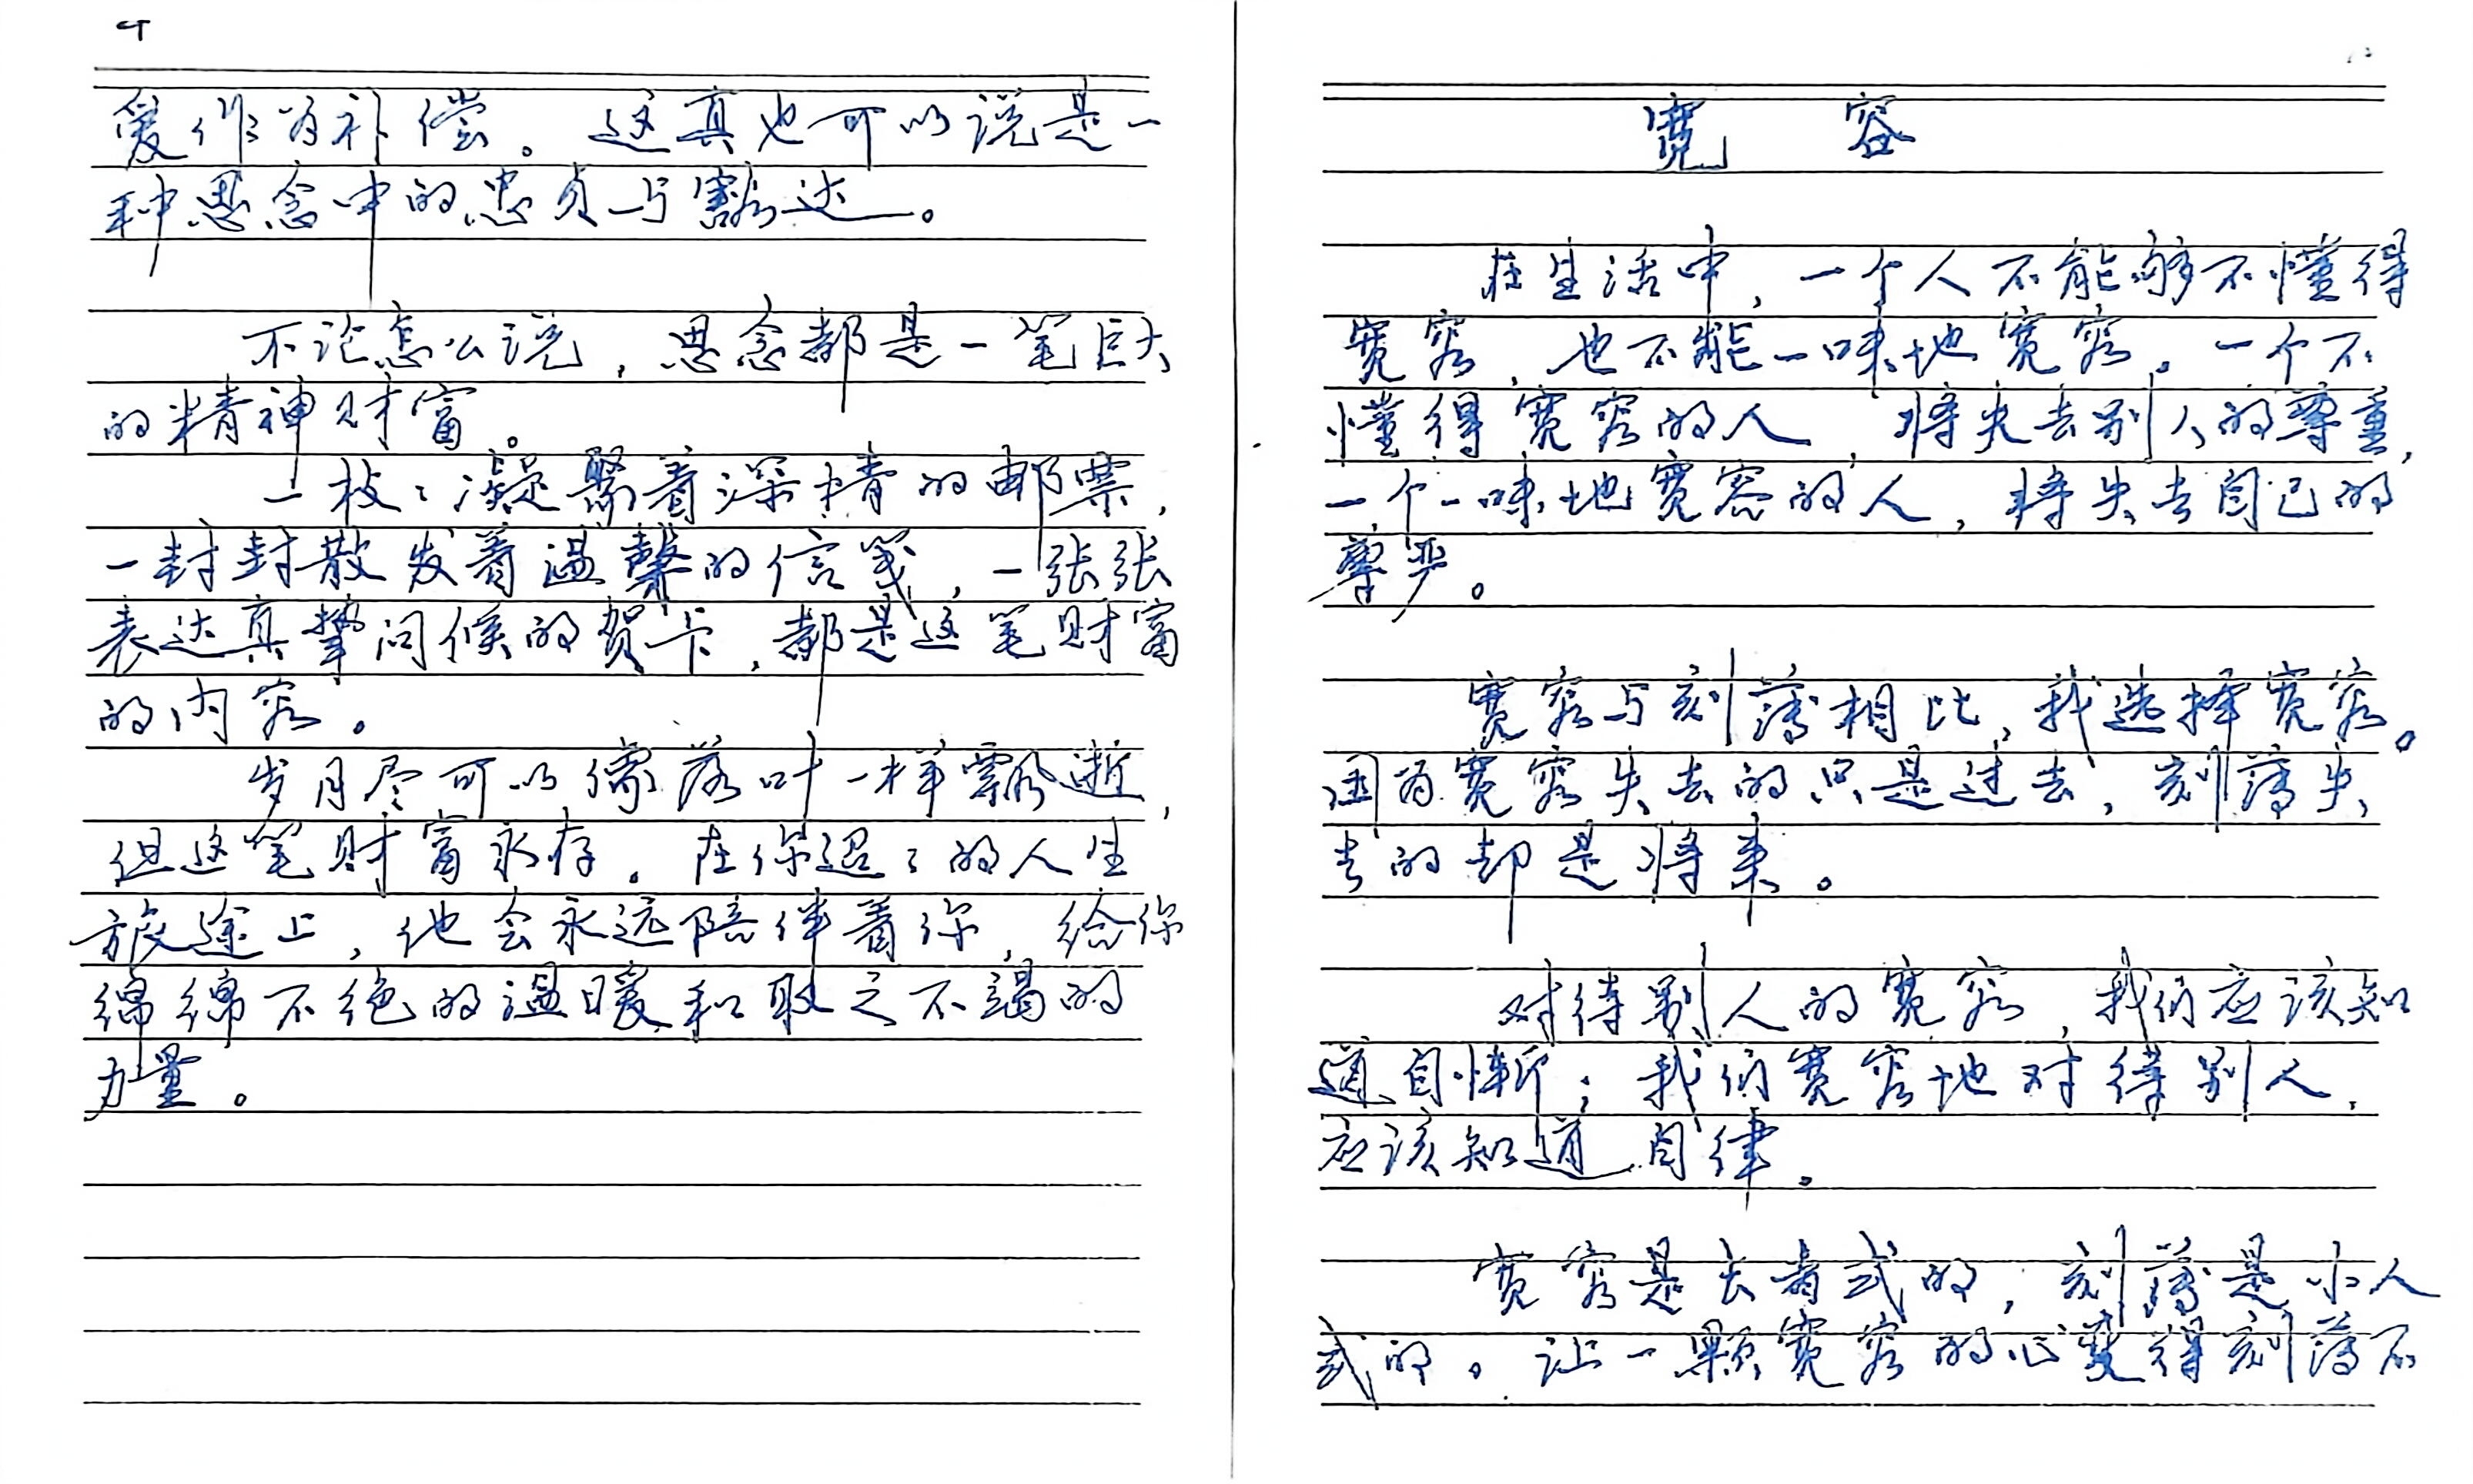 爱作为补偿。这真也可以说是一
种思念中的忠贞与豁达。
不论怎么说，思念都是一笔巨大
的精神财富。
一枚〻凝聚着深情的邮票，
一封封散发着温馨的信笺，一张张
表达真挚问候的贺卡，都是这笔财富
的内容。
岁月尽可以像落叶一样飘逝，
但这笔财富永存。在你迢〻的人生
旅途上，他会永远陪伴着你，给你
绵绵不绝的温暖和取之不竭的
力量。
宽 容
在生活中，一个人不能够不懂得
宽容，也不能一味地宽容。一个不
懂得宽容的人，将失去别人的尊重，
一个一味地宽容的人，将失去自己的
尊严。
宽容与刻薄相比，我选择宽容。
因为宽容失去的只是过去，刻薄失
去的却是将来。
对待别人的宽容，我们应该知
道自惭；我们宽容地对待别人，
应该知道自律。
宽容是长者式的，刻薄是小人
式的。让一颗宽容的心变得刻薄不